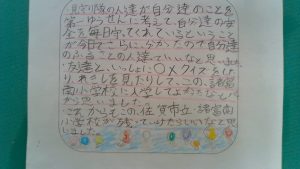 見守り隊の人達が自分達のことを
第一ゆうせんに考えて、自分達の安
全を毎日守ってくれているということ
が今日でさらに分かったので自分達
のふるさとの人達ていいなと思いました
友達と、いっしょに〇メクイズをした
り、れきしを見たりして、この諸富
南小学校に入学してよかったなと
思いました。
これからもこの、佐賀市立諸富南
小学校が残っていけたらいいなと思
いました。